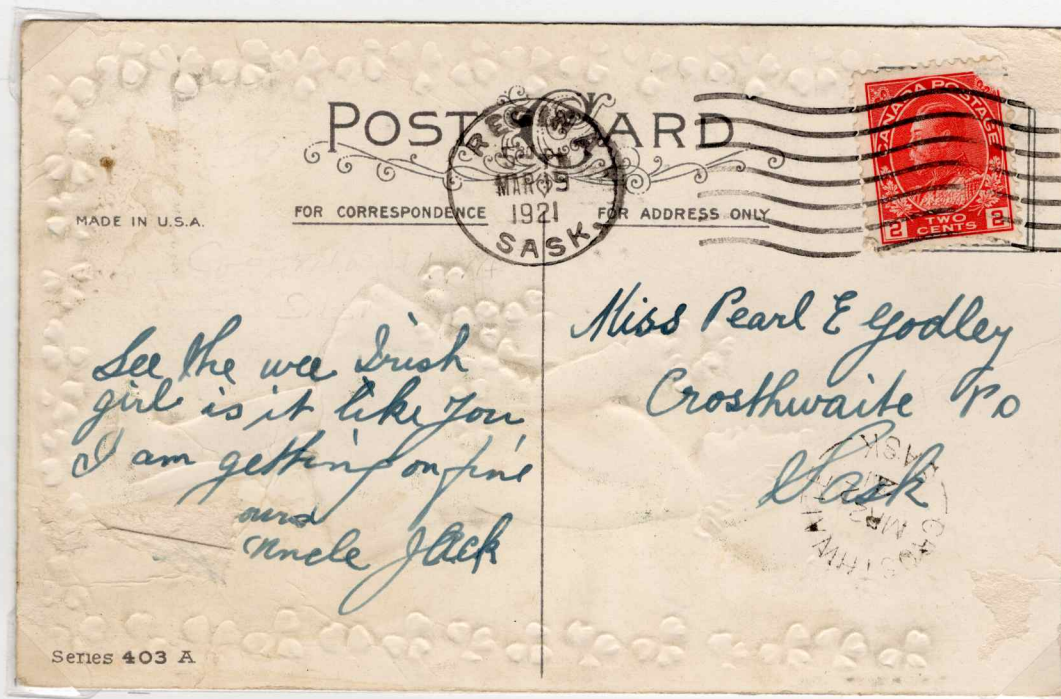 POST CARD
REGINA
MAR 19
1921
SASK
CANADA POSTAGE
2 TWO CENTS 2
MADE IN U.S.A.
FOR CORRESPONDENCE
FOR ADDRESS ONLY
See the wee Irish
girl is it like you
I am getting on fine
Uncle Jack
Miss Pearl E Godley
Crosthwaite PO
Sask
SASK
Series 403 A